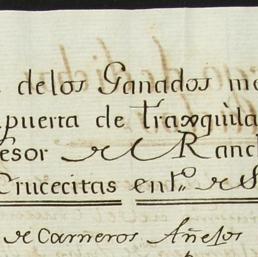 delos Ganados
puerta de traxquila
esor de el Ranc
Crucecitas ent.º de S
de Carneros Añejos